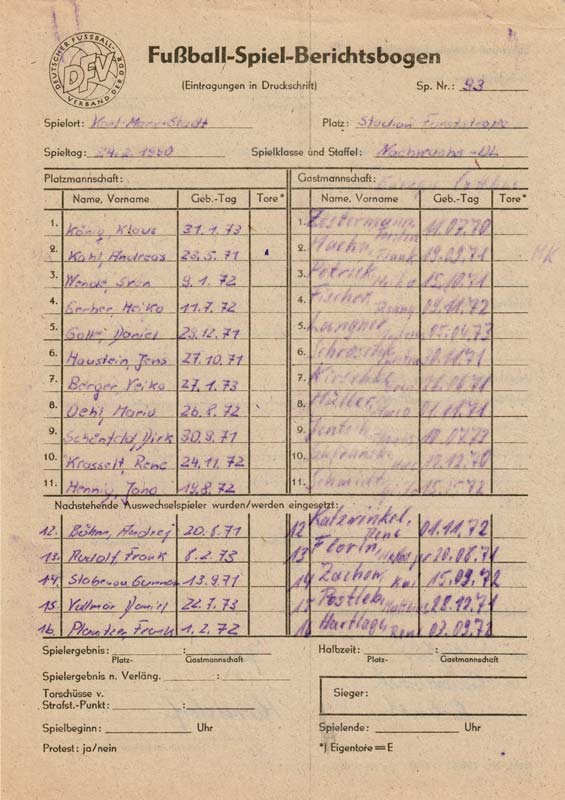 DEUTSCHER FUSSBALL-VERBAND DER DDR
DFV
Fußball-Spiel-Berichtsbogen
(Eintragungen in Druckschrift)
Sp. Nr.: 93
Spielort: Karl-Marx-Stadt Platz: Stadion
Spieltag: 24.2.1990 Spielklasse und Staffel: Nachwuchs-OL
Platzmannschaft: Gastmannschaft: Energie Cottbus
Name, Vorname Geb.-Tag Tore* Name, Vorname Geb.-Tag Tore*
1. König, Klaus 31.1.73 1. 11.07.70
2. Kahl, Andreas 23.5.71 2. Frank 19.09.71
3. Wende, Sven 9.1.72 3. Petrick, Heiko 15.10.71
4. Gerber, Heiko 11.7.72 4. Fischer, 09.11.72
5. Daniel 29.12.71 5. Langner, 05.04.73
6. Haustein, Jens 27.10.71 6.
7. Berger Veiko 27.1.73 7. Kirschke,
8. Oehl, Mario 26.8.72 8. Müller, 01.11.71
9. Schönfeld, Dirk 30.9.71 9. Jentsch
10. Krasselt, Rene 24.11.72 10. 12.12.70
11. Hennig, 19.8.72 11. Schmidt,
Nachstehende Auswechselspieler wurden/werden eingesetzt:
12. Böhm, Andrej 20.8.71 12 Katzwinkel, Rene 01.11.72
13. Rudolf, Frank 8.2.73 13 Florin, 20.08.71
14. Stabenau Gunnar 13.9.71 14 Zachow, Kai 15.09.72
15. Vollmar Daniel 22.7.73 15 Postleb, Matthias 28.12.71
16. Frank 1.2.72 16 Hartlage, Rene
Spielergebnis: : Halbzeit: :
Platz- Gastmannschaft Platz- Gastmannschaft
Spielergebnis n. Verläng. :
Torschüsse v.
Strafst.-Punkt: : Sieger:
Spielbeginn: Uhr Spielende: Uhr
Protest: ja/nein *) Eigentore = E